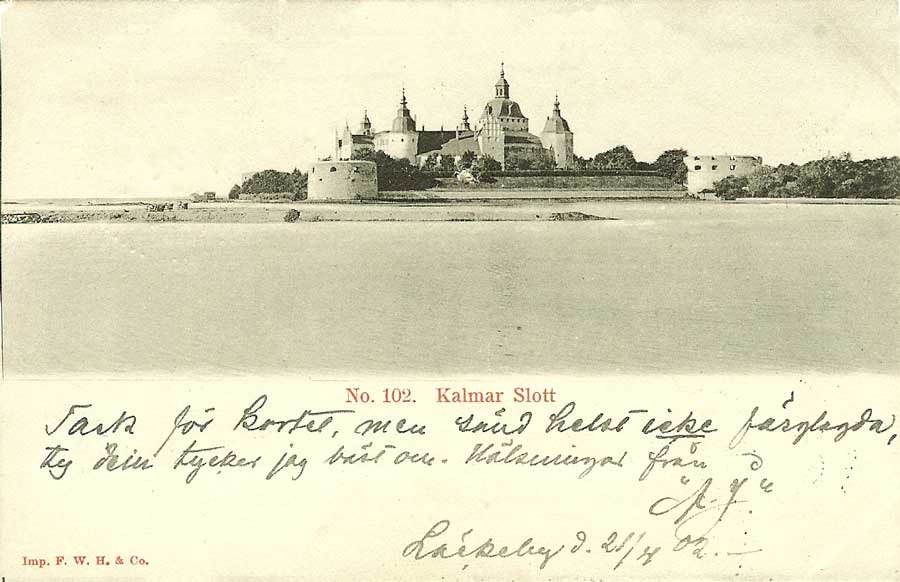 No. 102. Kalmar Slott
Tack för kortet, men sänd helst icke färglagda,
ty dem tycker jag bäst om. Hälsningar från
"A. J."
Läckeby d. 21/4 02.
Imp. F. W. H. & Co.